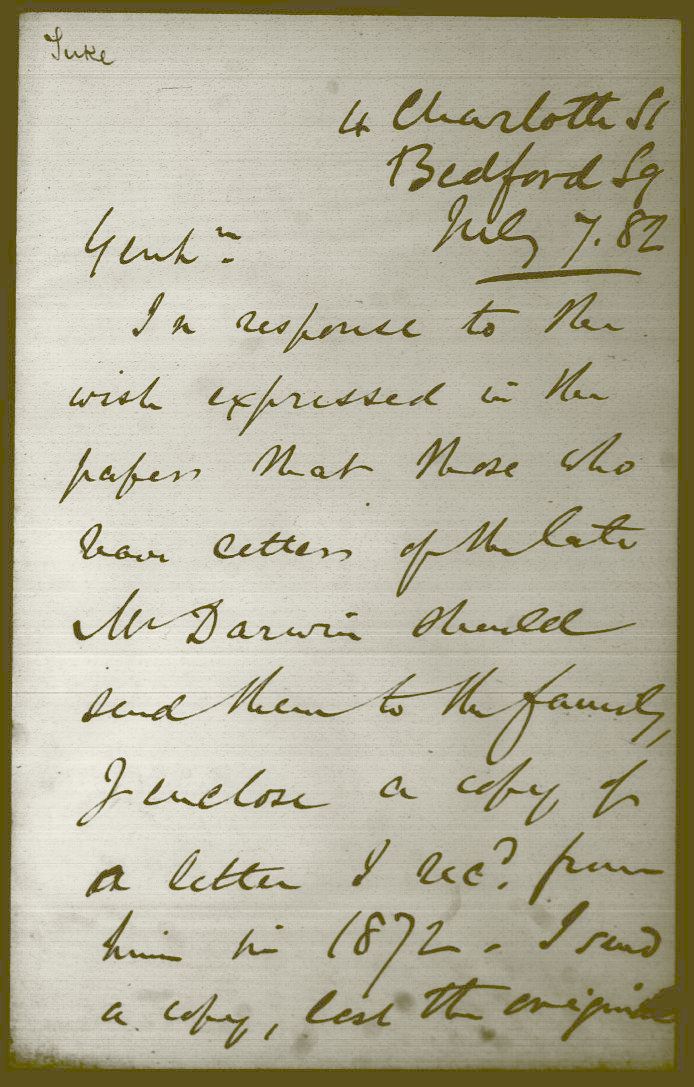 Tuke
4 Charlotte St
Bedford Sq
July 7. 82
Gentn
In response to the
wish expressed in the
papers that those who
have letters of the late
Mr Darwin should
send them to the family,
I enclose a copy of
a letter I recd. from
him in 1872. I send
a copy, lest the original